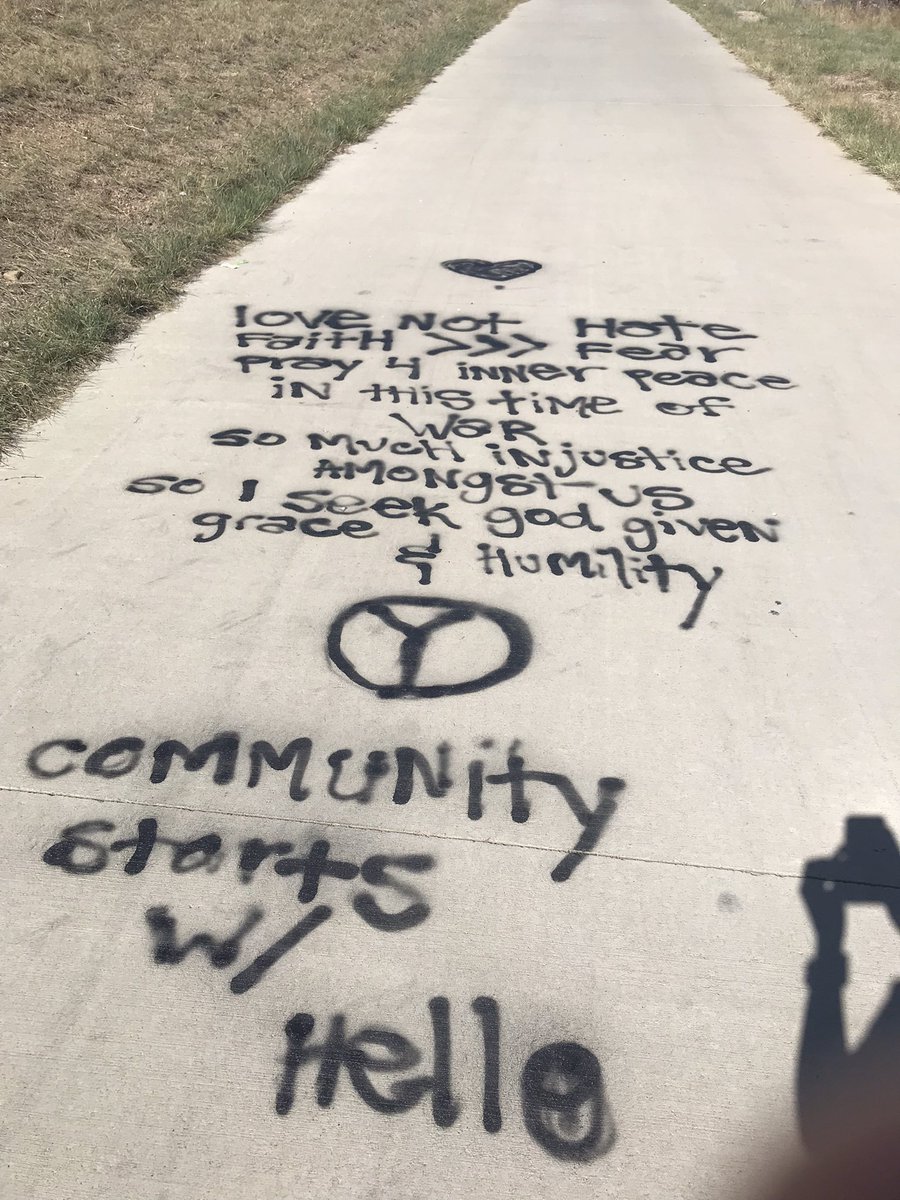 love Not Hate
Faith >>> Fear
Pray 4 inner peace
in this time of
War
so much injustice
Amongst us
so I seek god given
grace
& Humility
community
starts
w/
Hello